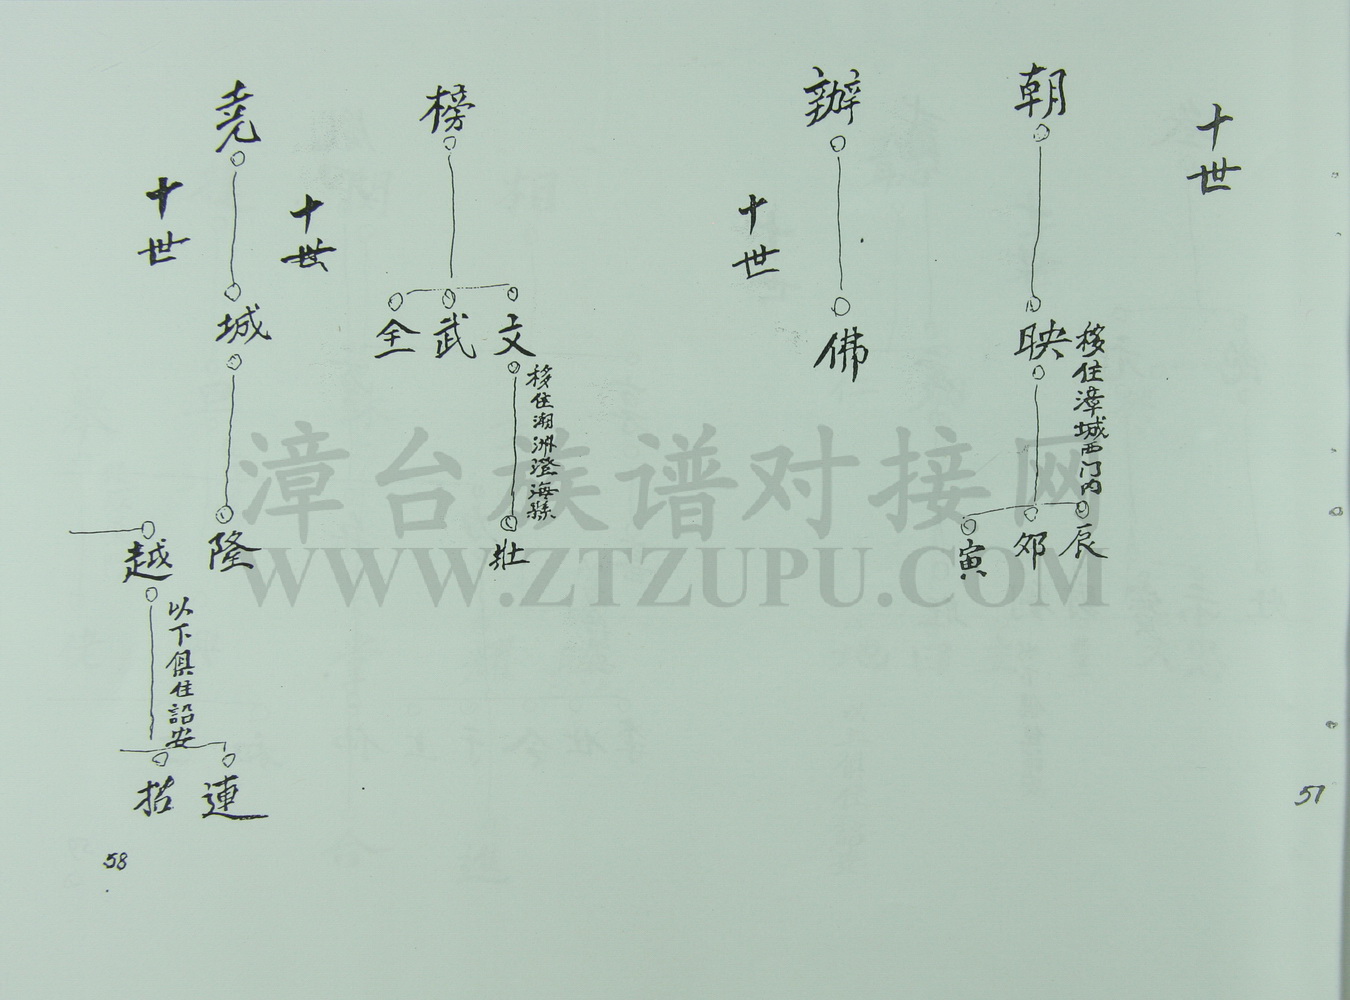 十世
朝
映
移住漳城西门内
辰
夘
寅
十世
辦
佛
十世
榜
文
武
全
移住潮洲澄海縣
壯
十世
尭
城
隆
越
以下俱住詔安
連
招
57
58
漳台族谱对接网
WWW.ZTZUPU.COM